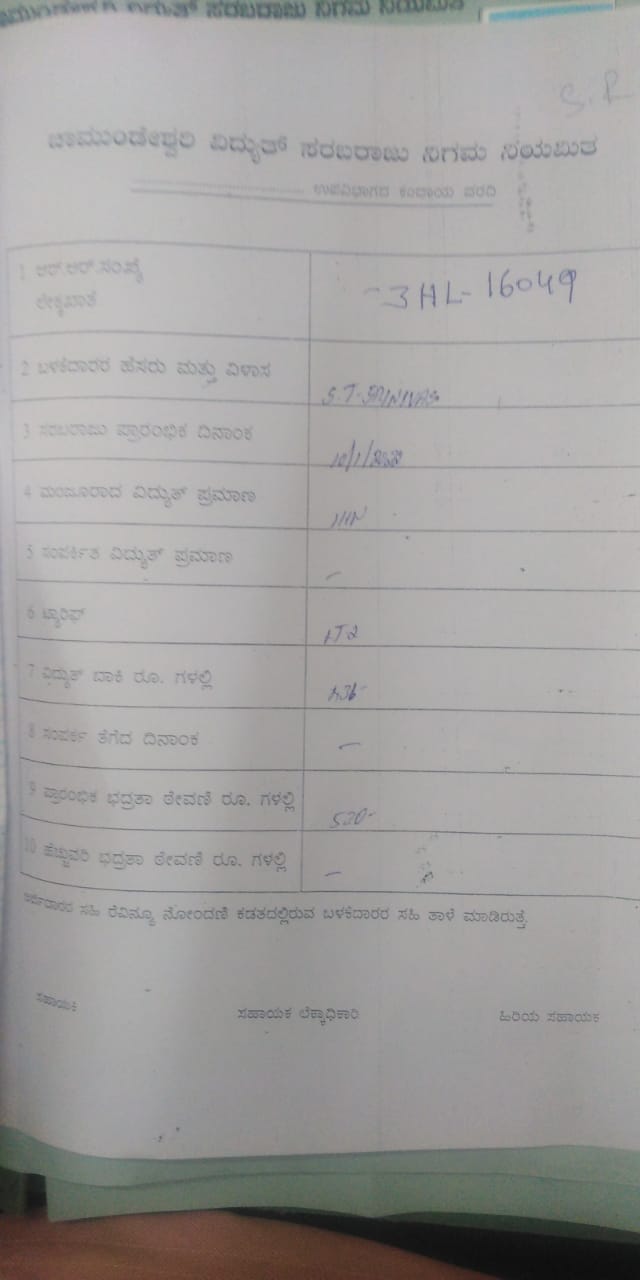 ಸರಬರಾಜು ನಿಗಮ ನಿಯಮಿತ
S.R
ಚಾಮುಂಡೇಶ್ವರಿ ವಿದ್ಯುತ್ ಸರಬರಾಜು ನಿಗಮ ನಿಯಮಿತ
ಉಪವಿಭಾಗದ ಕಂದಾಯ ವರದಿ
1 ಆರ್.ಆರ್.ಸಂಖ್ಯೆ
ಲೆಕ್ಕಖಾತೆ
3HL-16049
2 ಬಳಕೆದಾರರ ಹೆಸರು ಮತ್ತು ವಿಳಾಸ
S.T.
3 ಸರಬರಾಜು ಪ್ರಾರಂಭಿಕ ದಿನಾಂಕ
10/1/
4 ಮಂಜೂರಾದ ವಿದ್ಯುತ್ ಪ್ರಮಾಣ
5 ಸಂಪರ್ಕಿತ ವಿದ್ಯುತ್ ಪ್ರಮಾಣ
-
6 ಟ್ಯಾರಿಫ್
LT2
7 ವಿದ್ಯುತ್ ಬಾಕಿ ರೂ. ಗಳಲ್ಲಿ
8 ಸಂಪರ್ಕ ತೆಗೆದ ದಿನಾಂಕ
-
9 ಪ್ರಾರಂಭಿಕ ಭದ್ರತಾ ಠೇವಣಿ ರೂ. ಗಳಲ್ಲಿ
520-
10 ಹೆಚ್ಚುವರಿ ಭದ್ರತಾ ಠೇವಣಿ ರೂ. ಗಳಲ್ಲಿ
-
ಅರ್ಜಿದಾರರ ಸಹಿ ರೆವಿನ್ಯೂ ನೋಂದಣಿ ಕಡತದಲ್ಲಿರುವ ಬಳಕೆದಾರರ ಸಹಿ ತಾಳೆ ಮಾಡಿರುತ್ತೆ.
ಸಹಾಯಕ ಸಹಾಯಕ ಲೆಕ್ಕಾಧಿಕಾರಿ ಹಿರಿಯ ಸಹಾಯಕ